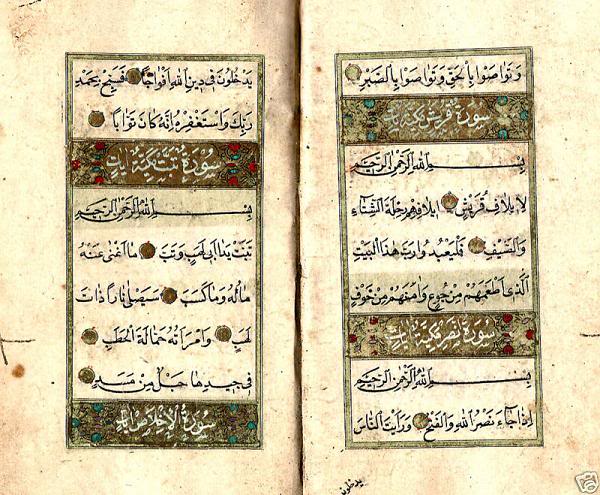 وتواصوا بالحق وتواصوا بالصبر
سورة قريش مكية
بسم الله الرحمن الرحيم
لايلاف قريش ايلافهم رحلة الشتاء
والصيف فليعبدوا رب هذا البيت
الذى اطعمهم من جوع وامنهم من خوف
سورة نصر مكية
بسم الله الرحمن الرحيم
اذا جاء نصر الله والفتح ورايت الناس
يدخلون
يدخلون فى دين الله افواجا فسبح بحمد
ربك واستغفره انه كان توابا
سورة تبت مكية
بسم الله الرحمن الرحيم
تبت يدا ابى لهب وتب ما اغنى عنه
ماله وما كسب سيصلى نارا ذات
لهب وامراته حمالة الحطب
فى جيدها حبل من مسد
سورة الاخلاص